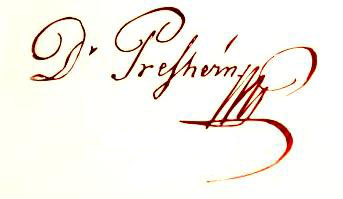 Dr Preſhérn